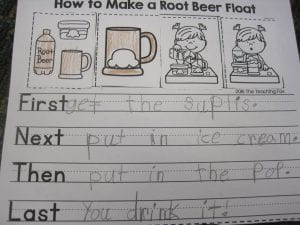 How to Make a Root Beer Float
Root
Beer
2016 The Teaching Fox
First get the suplis.
Next put in ice cream.
Then put in the pop.
Last You drink it!